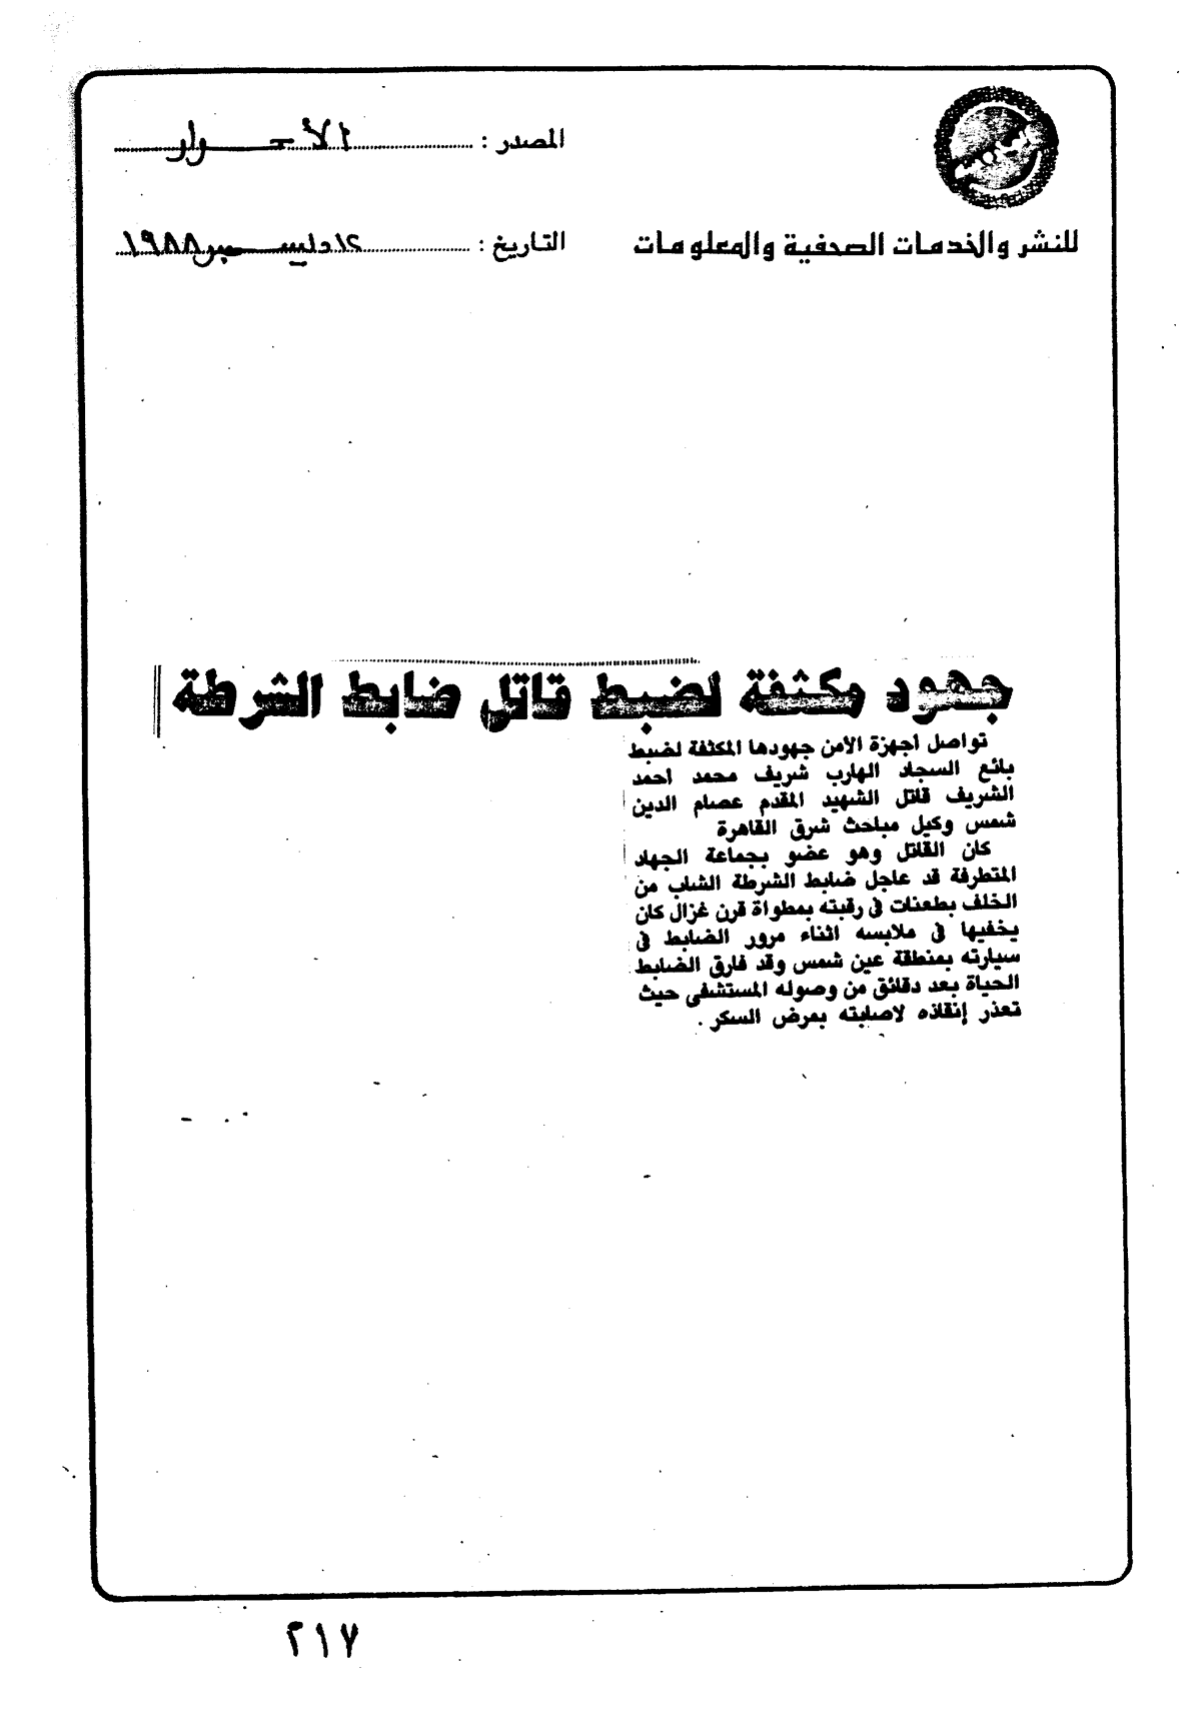 المصدر : الأحرار
للنشر والخدمات الصحفية والمعلومات
التاريخ : ١٢ ديسمبر ١٩٨٨
جهود مكثفة لضبط قاتل ضابط الشرطة
تواصل أجهزة الأمن جهودها المكثفة لضبط
بائع السجاد الهارب شريف محمد احمد
الشريف قاتل الشهيد المقدم عصام الدين
شمس وكيل مباحث شرق القاهرة
كان القاتل وهو عضو بجماعة الجهاد
المتطرفة قد عاجل ضابط الشرطة الشاب من
الخلف بطعنات فى رقبته بمطواة قرن غزال كان
يخفيها فى ملابسه اثناء مرور الضابط فى
سيارته بمنطقة عين شمس وقد فارق الضابط
الحياة بعد دقائق من وصوله المستشفى حيث
تعذر إنقاذه لاصابته بمرض السكر .
٢١٧